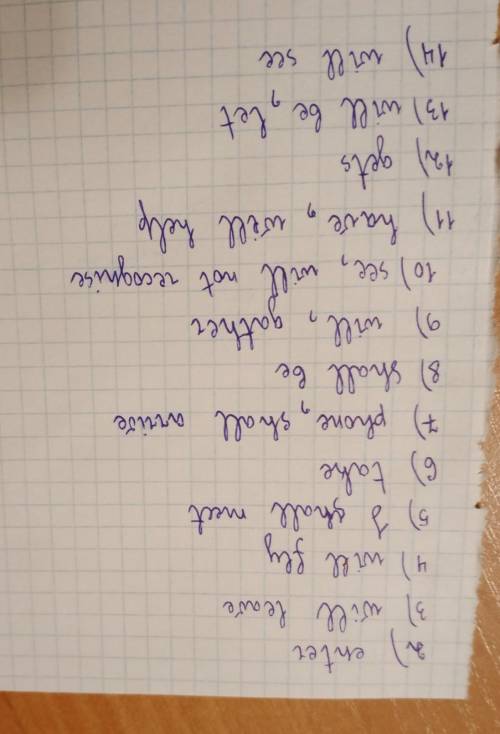 2) enter
3) will leave
4) will fly
5) I shall meet
6) take
7) phone, shall arrive
8) shall be
9) will, gather
10) see, will not recognise
11) have, will help
12) gets
13) will be, let
14) will see